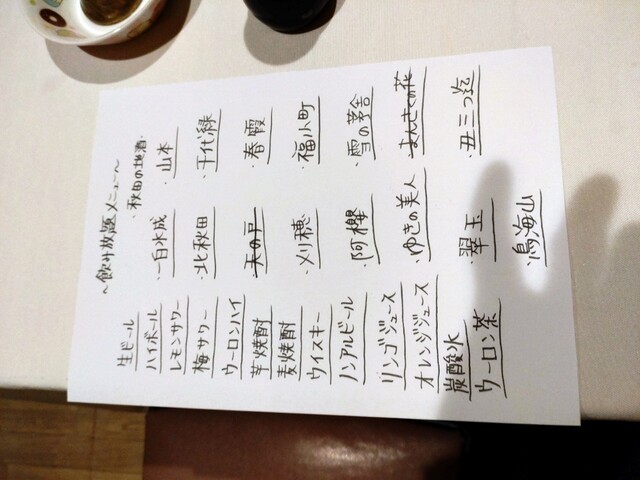 ～飲み放題メニュー～
・秋田の地酒・
・山本
・千代緑
・春霞
・福小町
・雪の茅舎
・まんさくの花
・丑三つ迄
・一白水成
・北秋田
・天の戸
・刈穂
・阿櫻
・ゆきの美人
・翠玉
・鳥海山
生ビール
ハイボール
レモンサワー
梅サワー
ウーロンハイ
芋焼酎
麦焼酎
ウイスキー
ノンアルビール
リンゴジュース
オレンジジュース
炭酸水
ウーロン茶